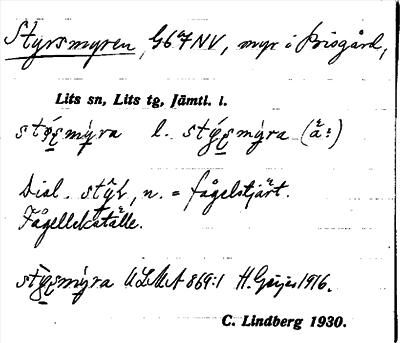 Styrsmyren, G67NV, myr i Prisgård,
Lits sn, Lits tg, Jämtl. l.
stȳʂmýra l. stýʂmýra (ä:)
Dial. stýr, n. = fågelstjärt.
Fågellekställe.
stýʂmýra ULMA 869:1 H. Geijer 1916.
C. Lindberg 1930.